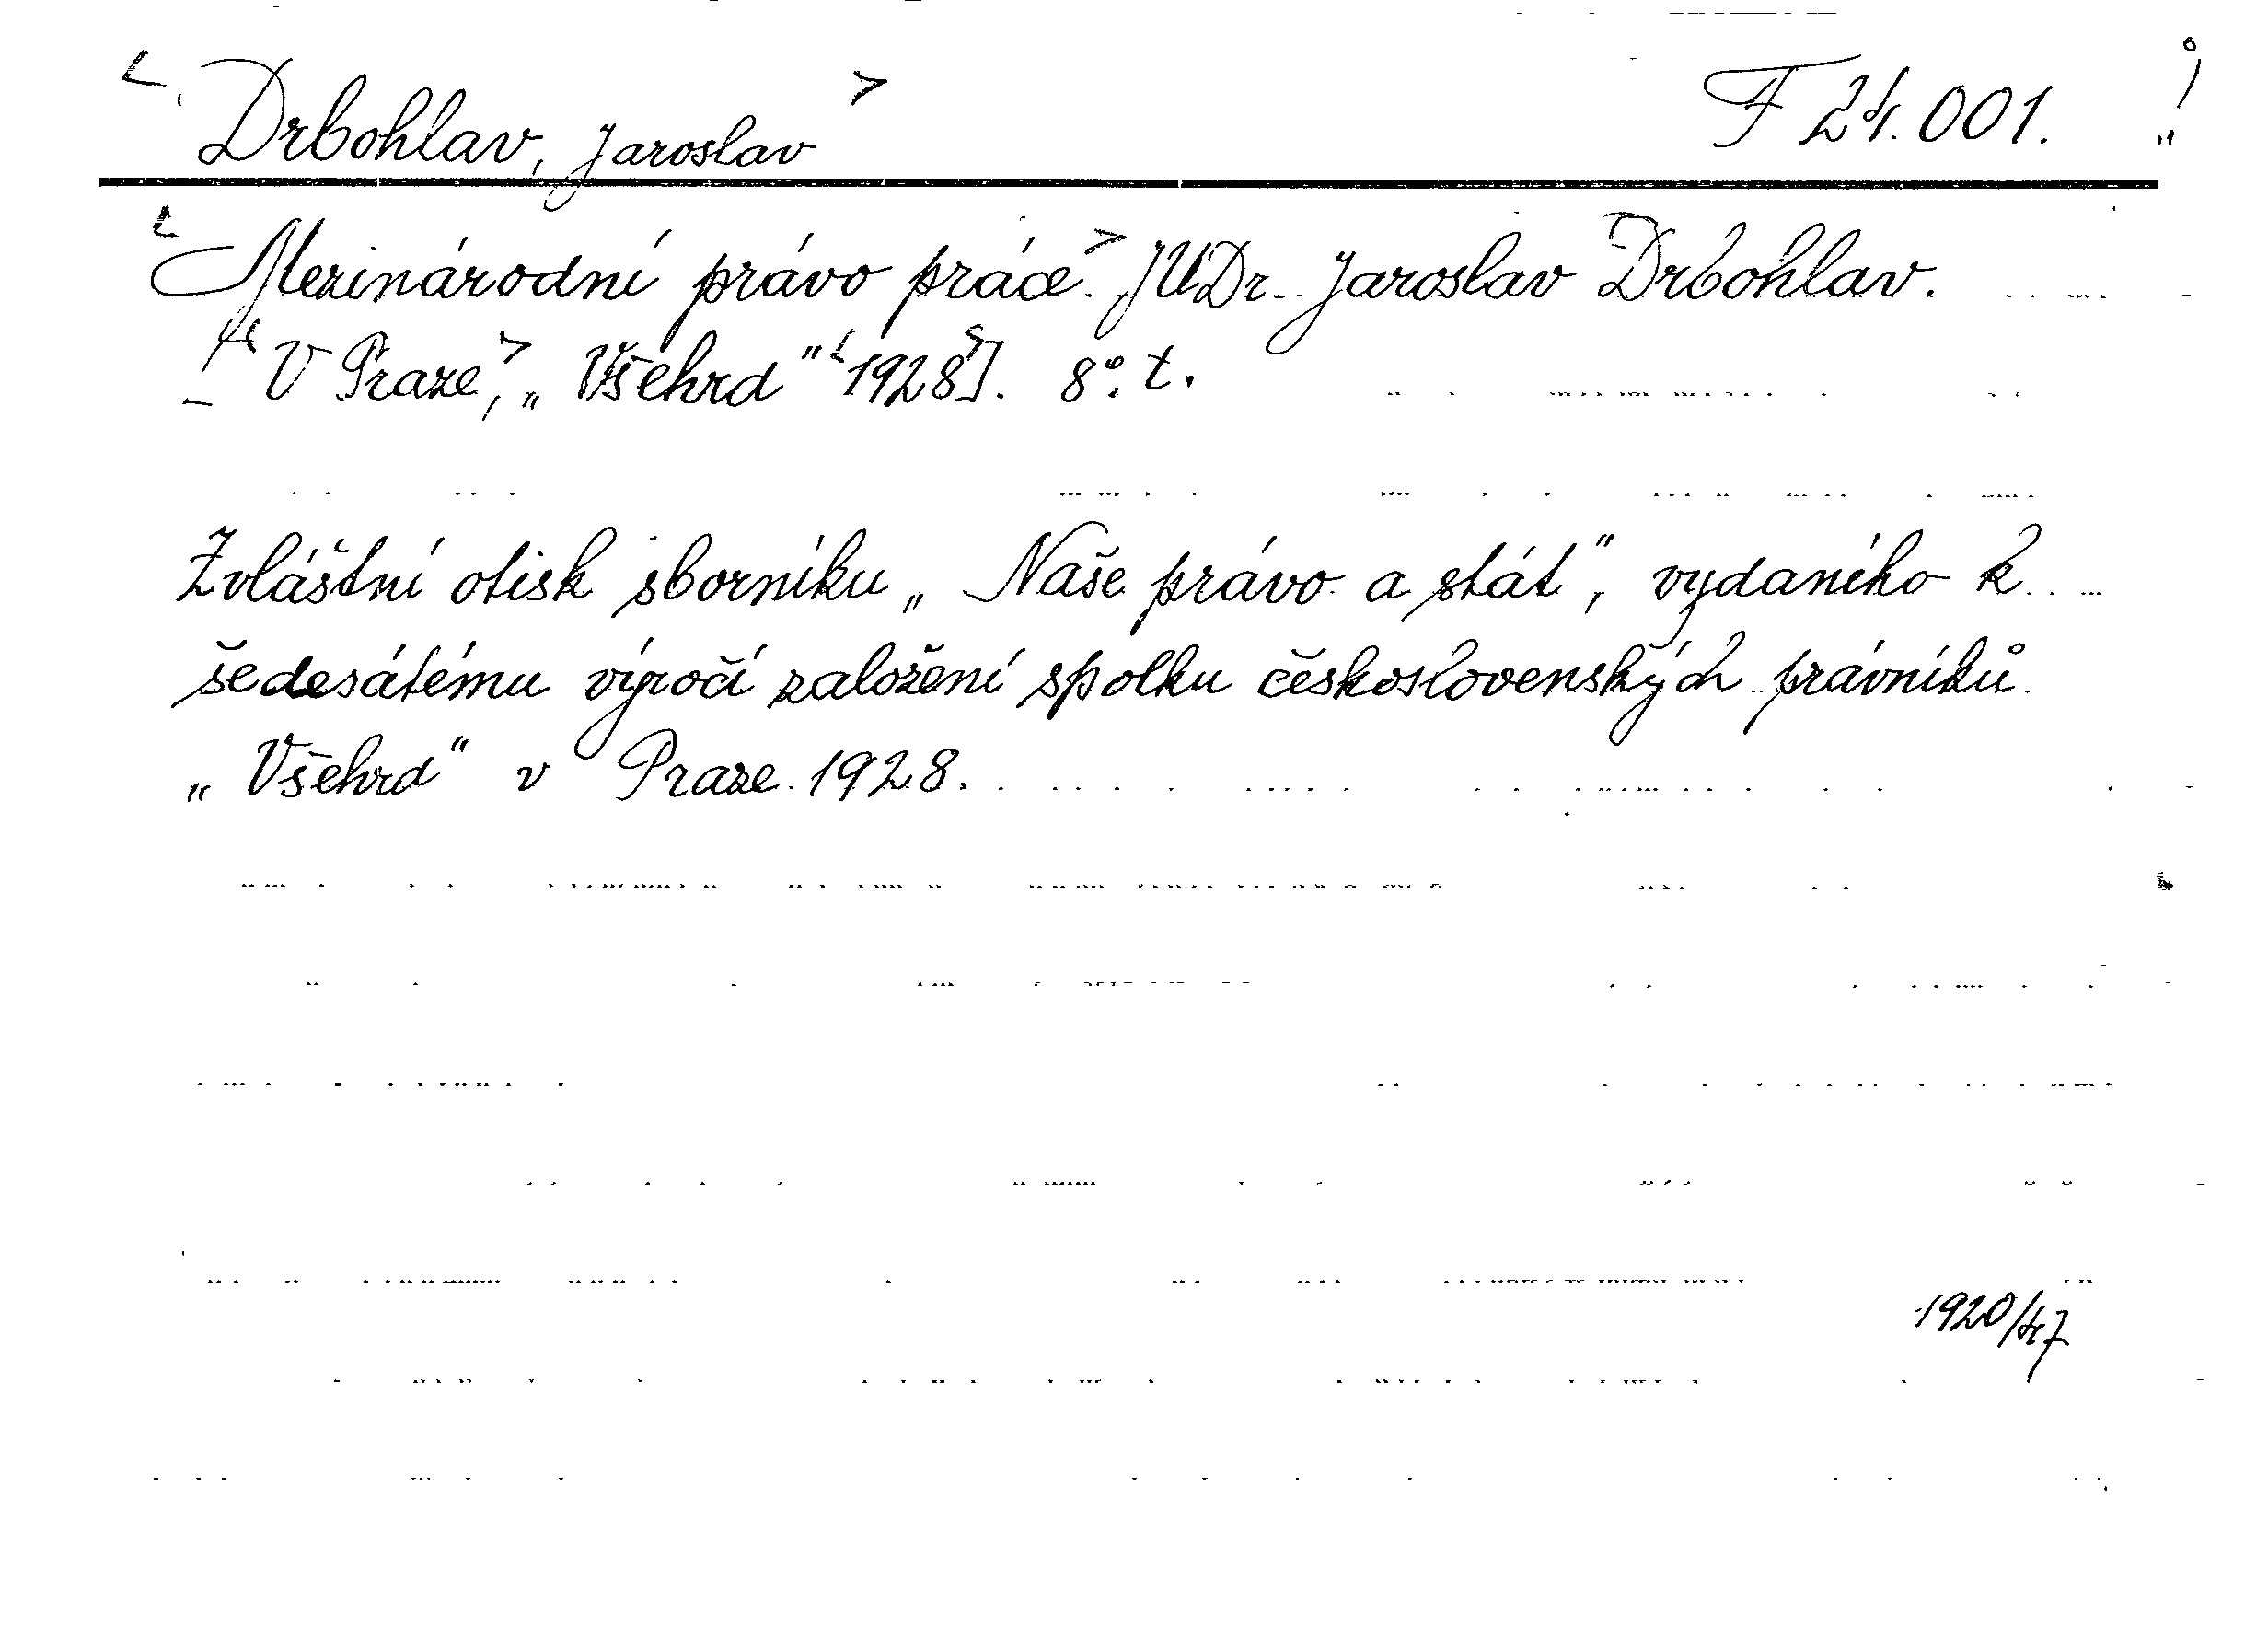 < Drbohlav, Jaroslav > F 24.001.
< Mezinárodní právo práce. > JUDr. Jaroslav Drbohlav.
[< V Praze, > „Všehrd“ < 1928 >]. 8°. t.
Zvláštní otisk sborníku „Naše právo a stát“, vydaného k
šedesátému výročí založení spolku československých právníků
„Všehrd“ v Praze 1928.
1920/47